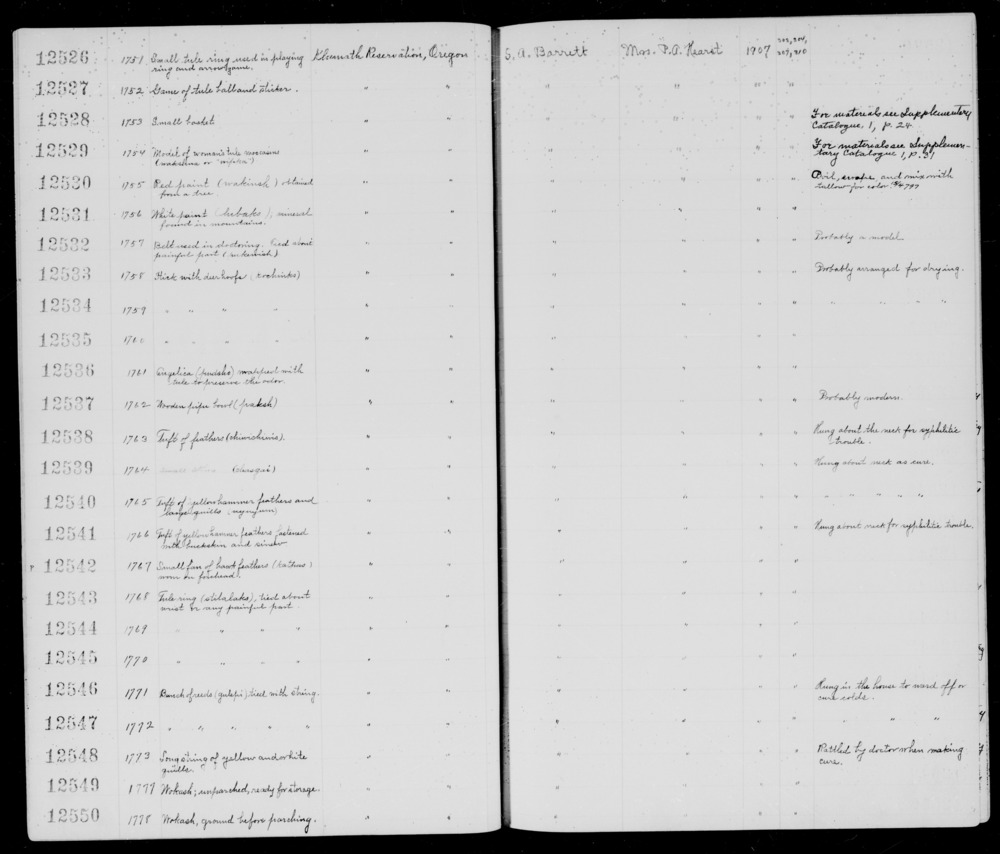 12526 1751 Small tule ring used in playing Klamath Reservation, Oregon S. A. Barrett Mrs. P. A. Hearst 1907 203, 204,
ring and arrow game. 207, 210
12527 1752 Game of tule ball and sticker. " " " " " "
12528 1753 Small basket " " " " " " For materials see Supplementary
Catalogue, 1, p. 24
12529 1754 Model of woman's tule moccasins " " " " " " For materials see Supplemen-
tary Catalogue 1, p. 31
12530 1755 Red paint (wakinsh) obtained " " " " " " Boil, scrape and mix with
from a tree tallow for color
12531 1756 White paint mineral " " " " " "
found in mountains.
12532 1757 Belt used in doctoring. Tied about " " " " " " Probably a model
painful part
12533 1758 Stick with deerhoofs " " " " " " Probably arranged for drying.
12534 1759 " " " " " " " " " " " " " "
12535 1760 " " " " " " " " " "
12536 1761 Angelica wrapped with " " " " " "
tule to preserve the odor.
12537 1762 Wooden pipe bowl (paksh) " " " " " " Probably modern.
12538 1763 Tuft of feathers " " " " " " Hung about the neck for syphilitic
trouble.
12539 1764 " " " " " " Hung about neck as cure.
12540 1765 Tuft of yellowhammer feathers and " " " " " " " " " " "
large quills
12541 1766 Tuft of yellowhammer feathers fastened " " " " " " Hung about neck for syphilitic trouble.
with buckskin and sinew
12542 1767 Small fan of hawk feathers " " " " " "
worn on forehead.
12543 1768 Tule ring (stilalaks), tied about " " " " " "
wrist or any painful part.
12544 1769 " " " " " " " " " "
12545 1770 " " " " " " " " " "
12546 1771 Bunch of seeds tied with string. " " " " " " Hung in the house to ward off or
cure colds.
12547 1772 " " " " " " " " " " " " " "
12548 1773 Long string of yellow and white " " " " " " Rattled by doctor when making
quills. cure.
12549 1777 Wokash, unparched, ready for storage. " " " " " "
12550 1778 Wokash, ground before parching. " " " " " "